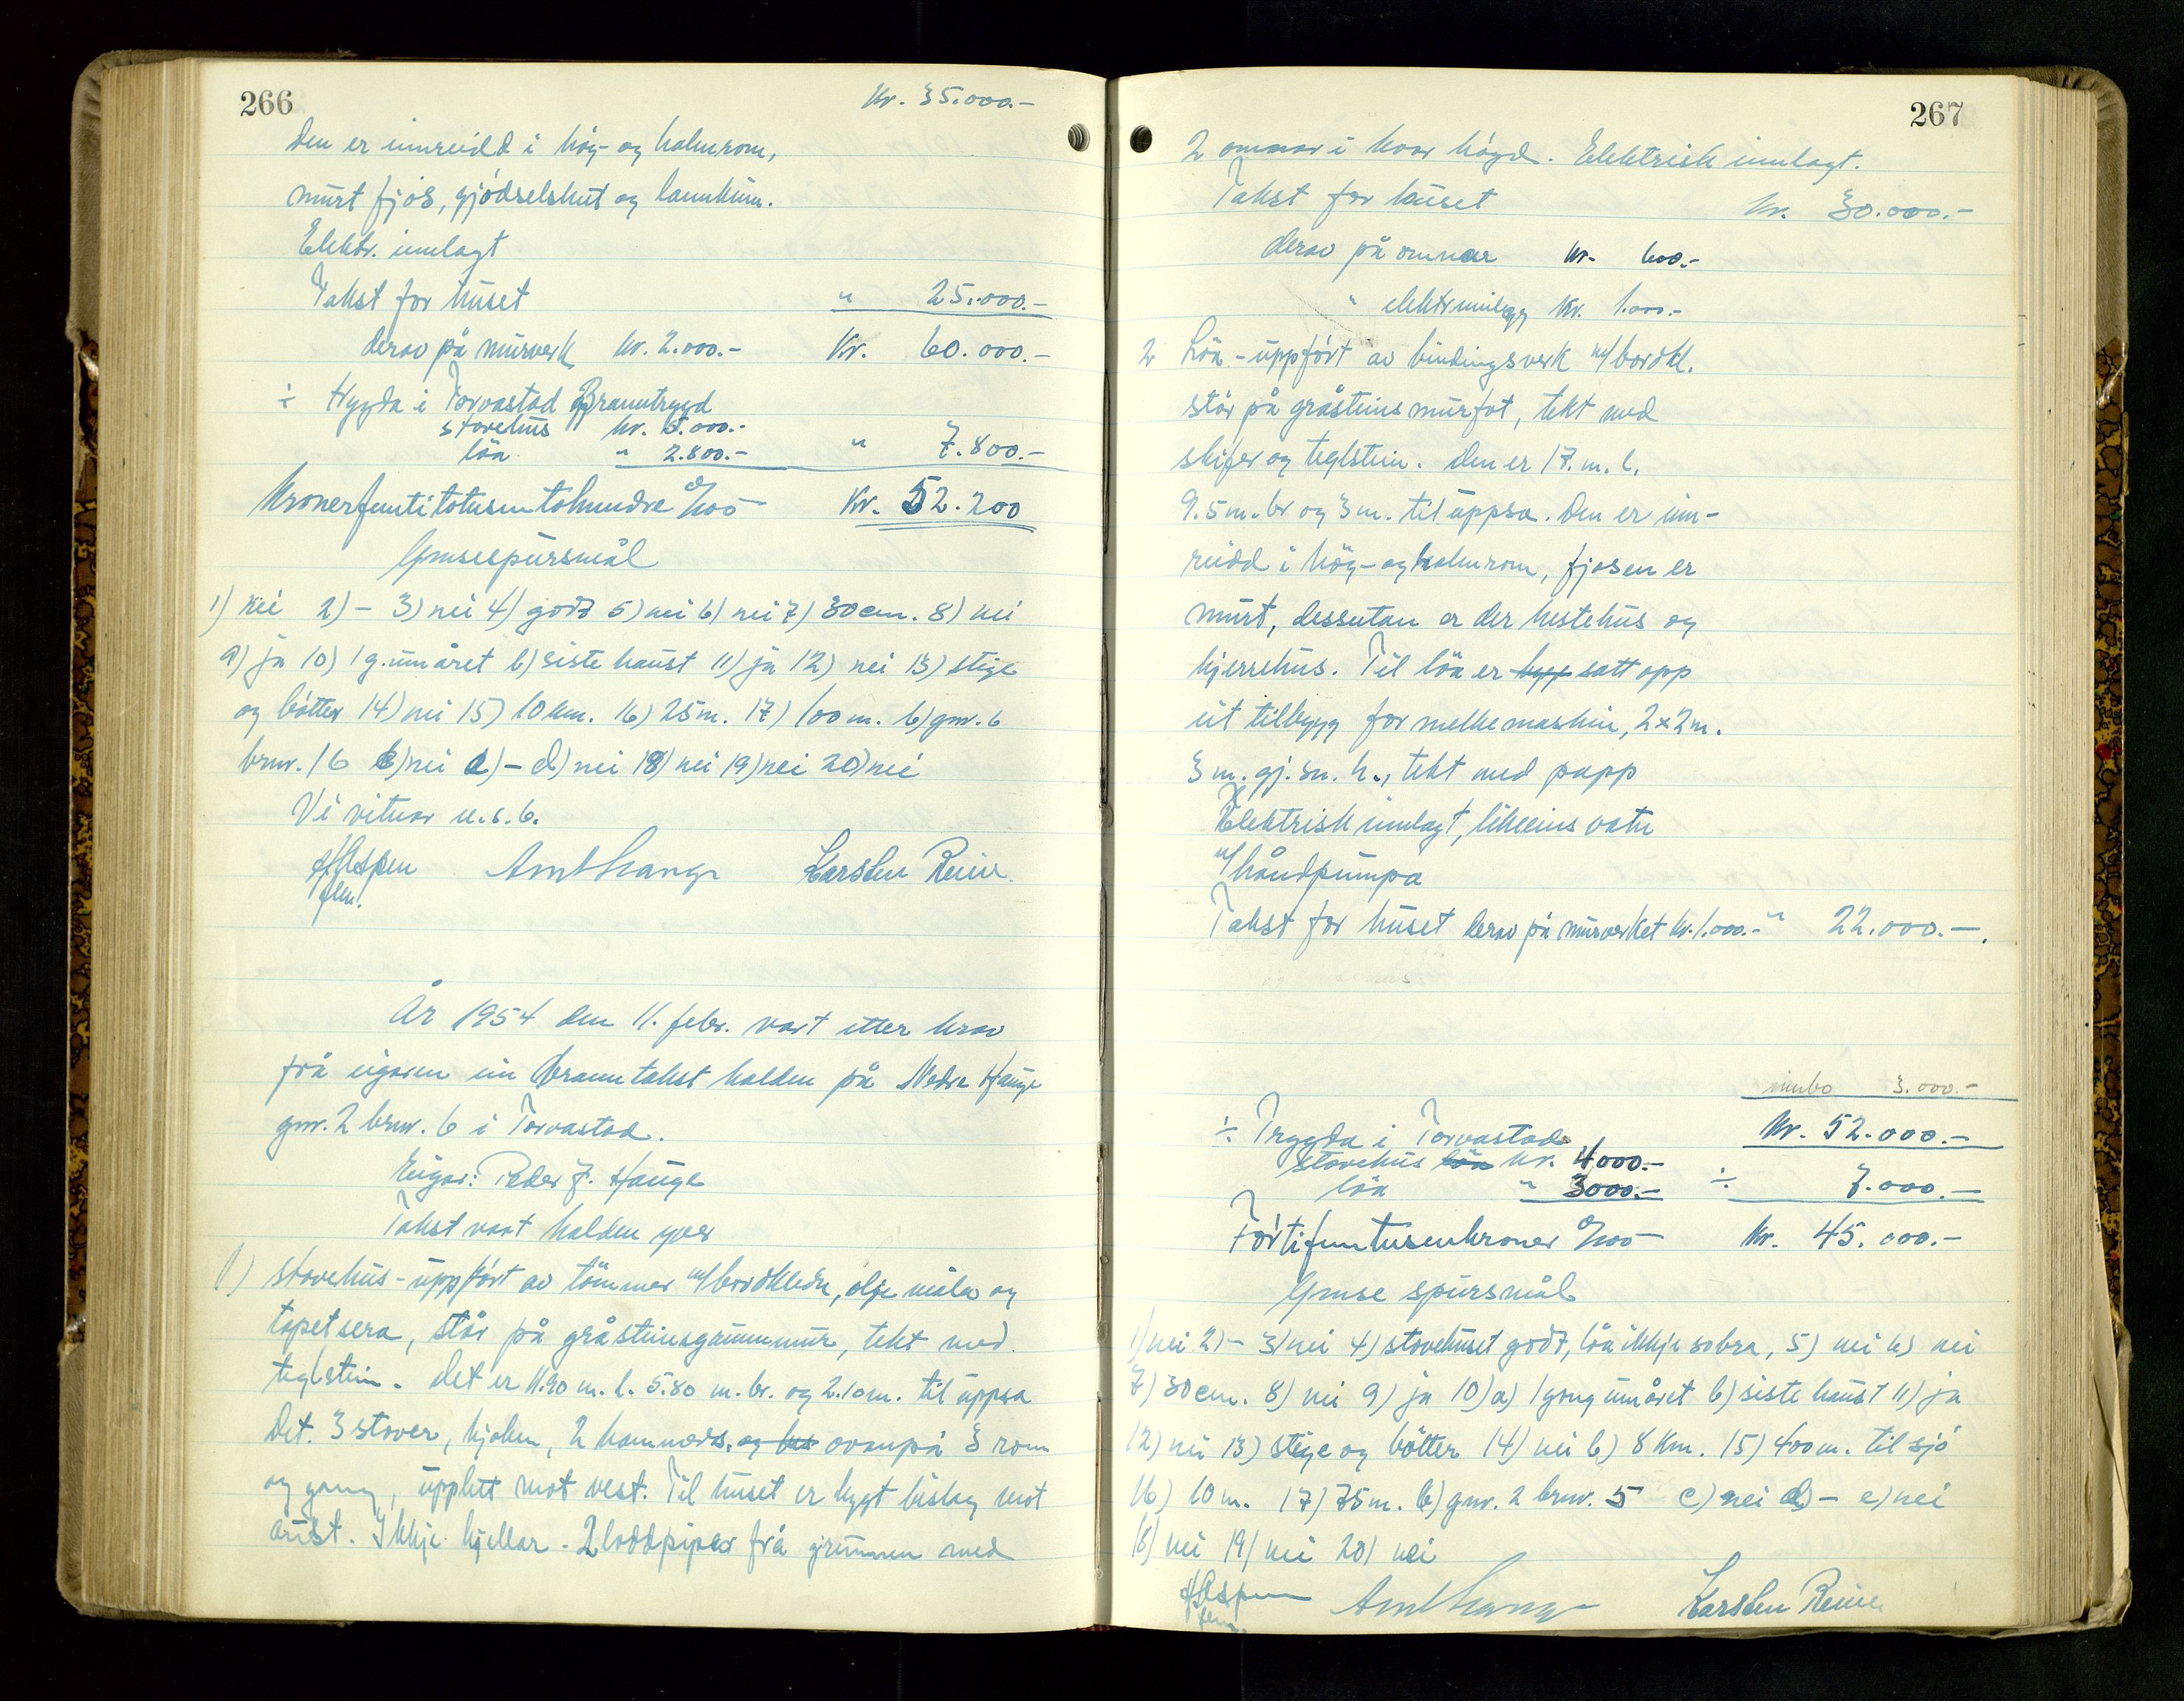 266
Kr. 35.000.-
Den er innreidd i høy- og halmrom,
murt fjøs, gjødselshut og lannkum.
Elektr. innlagt
Takst for huset " 25.000.-
derav på murverk kr. 2.000.- Kr. 60.000.-
÷ Trygda i Torvastad Branntrygd
stovehus kr. 5.000.-
löa " 2.800.- " 7.800.-
Kronerfemtitotusentohundre 0/100 Kr. 52.200
Ymsespursmål
1) nei 2) - 3) nei 4) godt 5) nei 6) nei 7) 30 cm. 8) nei
9) ja 10) 1 g. um året b) siste haust 11) ja 12) nei 13) stige
og bötter 14) nei 15) 10 km. 16) 25 m. 17) 100 m. b) gnr. 6
brnr. 16 c) nei d) - d) nei 18) nei 19) nei 20) nei
Vi vitnar u.s.b.
H Aspen Aml Hauge Karsten Reine
flm.
År 1954 den 11. febr. vart etter krav
frå eigaren ein branntakst halden på Nedre Hauge
gnr. 2 brnr. 6 i Torvastad.
Eigar: Peder J. Hauge
Takst vart halden yver
1) stovehus - uppfört av tömmer m/bordkledn, olje måla og
tapetsera, står på gråsteinsgrunnmur, tekt med
teglstein. Det er 11.90 m. l. 5.80 m. br. og 2.10 m. til uppsa
Det. 3 stover, kjöken, 2 kammers. og ovanpå 3 rom
og gang, upplett mot vest. Til huset er bygt bislag mot
aust. Ikkje kjellar. 2 loddpiper frå grunnen med
267
2 omnar i kvar högd. Elektrisk innlagt.
Takst for huset kr. 30.000.-
derav på omnar kr. 600.-
" elektrinnlegg kr. 1.000.-
2 Löa - uppfört av bindingsverk m/bordkl.
står på gråsteinsmurfot, tekt med
skifer og teglstein. Den er 17. m. l.
9.5 m. br og 3 m. til uppsa. Den er inn-
reidd i höy- og halmrom, fjosen er
murt, dessutan er der hestehus og
kjerrehus. Til löa er bygg satt opp
eit tilbygg for melkemaskin, 2 x 2 m.
3 m. gj. sn. h., tekt med papp
Elektrisk innlagt, likeeins vatn
m/håndpumpa
Takst for huset derav på murverket kr. 1.000.- " 22.000.-
innbo 3.000.-
÷ Trygda i Torvastad Kr. 52.000.-
stovehus löa kr. 4.000.-
löa " 3000.- ÷ 7.000.-
Förtifemtusenkroner 0/100 Kr. 45.000.-
Ymse spursmål
1) nei 2) - 3) nei 4) stovehuset godt, löa ikkje so bra, 5) nei 6) nei
7) 30 cm. 8) nei 9) ja 10) a) 1 gong um året b) siste haust 11) ja
12) nei 13) stige og bötter 14) nei b) 8 km. 15) 400 m. til sjö
16) 10 m. 17) 75 m. b) gnr. 2 brnr. 5 c) nei d) - e) nei
18) nei 19) nei 20) nei
H Aspen Aml Hauge Karsten Reine
flm.